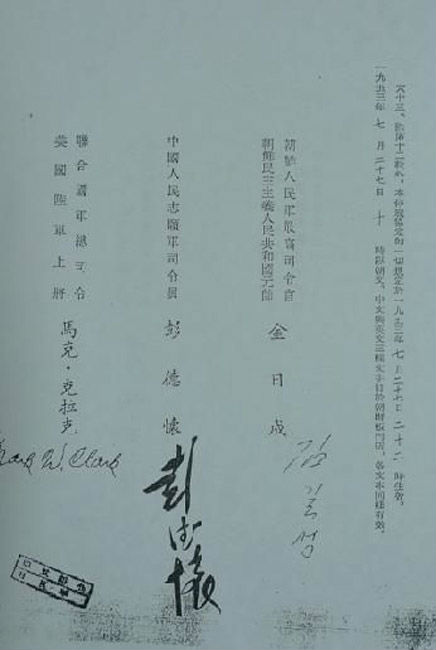 六十三、除第十二款外，本停戰協定的一切規定於一九五三年 七 月二十七日 二十二 時生效。
一九五三年 七 月 二十七日 十 時以朝文、中文與英文三種文字訂於朝鮮板門店，各文本同樣有效。
朝鮮人民軍最高司令官
朝鮮民主主義人民共和國元帥
金日成
김일성
中國人民志願軍司令員
彭德懷
彭德懷
聯合國軍總司令
美國陸軍上將
馬克·克拉克
Mark W. Clark